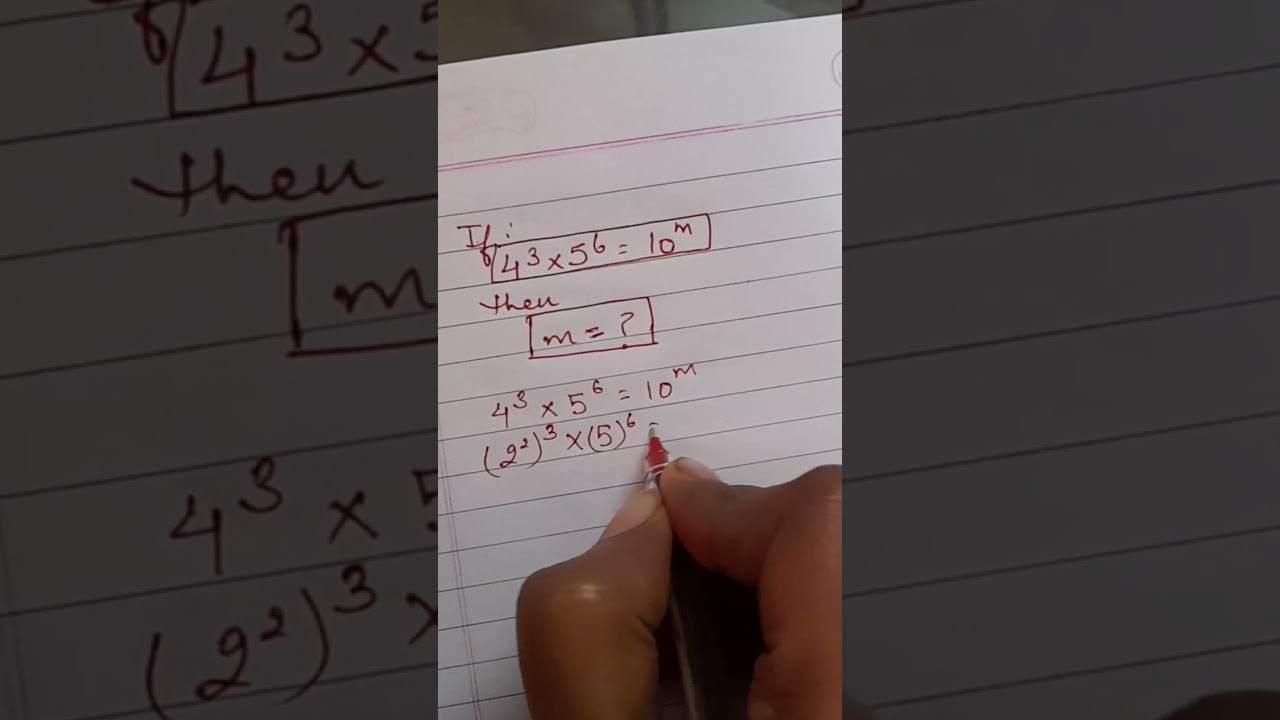 If :
4³ × 5⁶ = 10ᵐ
then
m = ?
4³ × 5⁶ = 10ᵐ
(2²)³ × (5)⁶ =